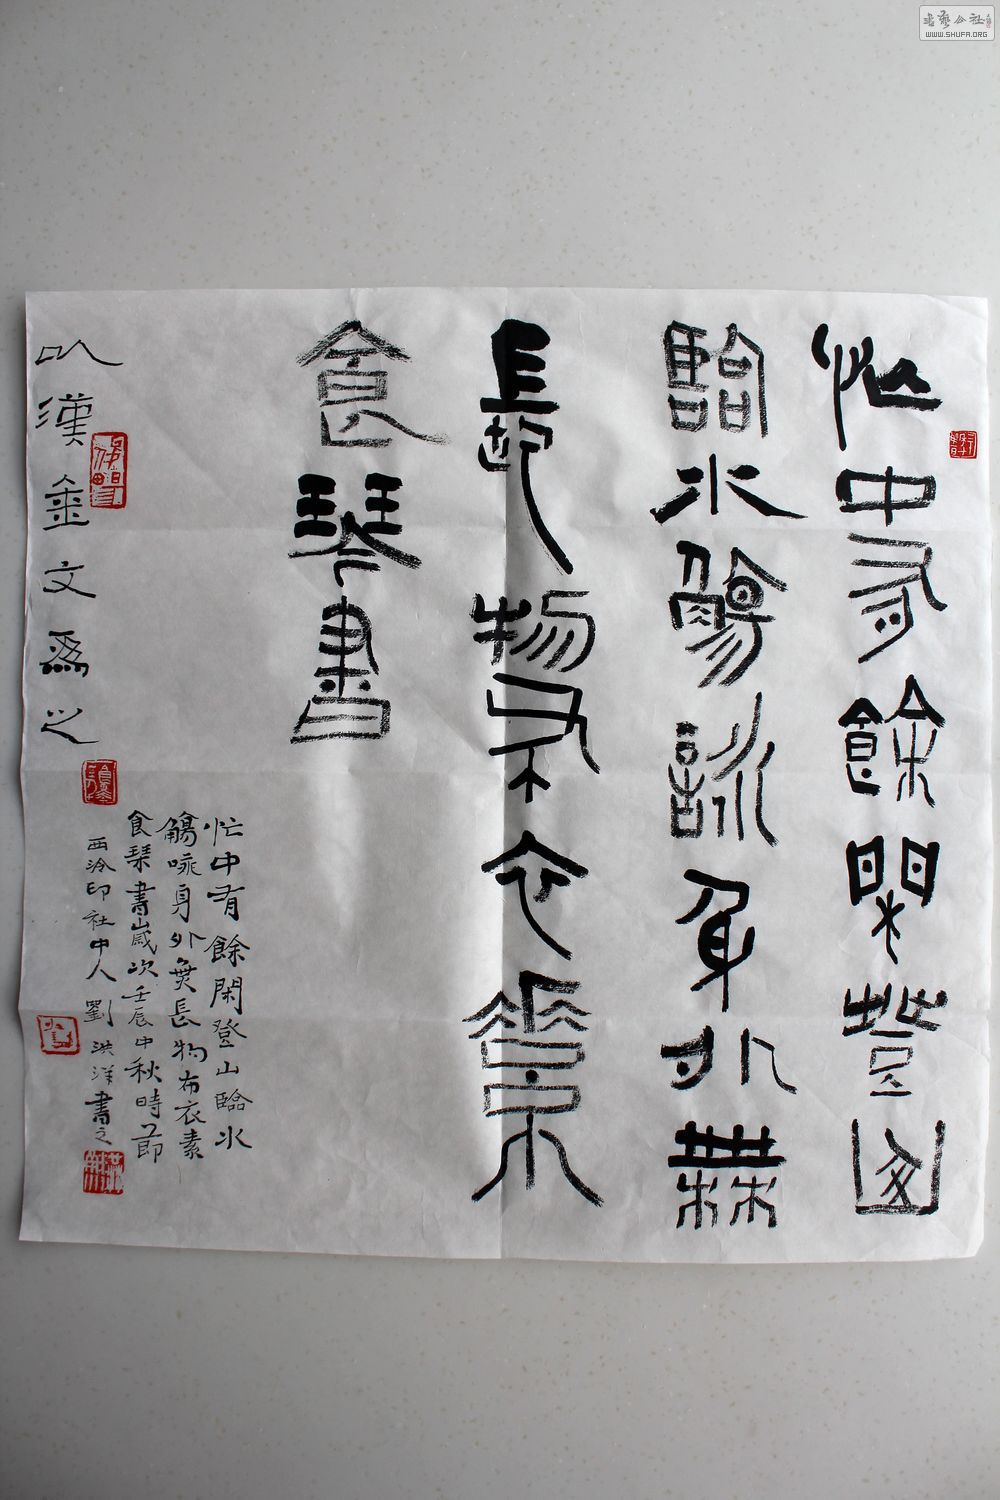 忙中有餘閒登山
臨水觴詠身外無
長物布衣素
食琴書
忙中有餘閑登山臨水
觴咏身外無長物布衣素
食琹書歲次壬辰中秋時節
西泠印社中人劉洪洋書之
以漢金文爲之
WWW.SHUFA.ORG